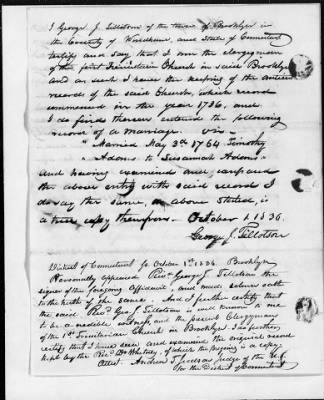 I George J. Tillotson of the town of Brooklyn in
the County of Windham, and State of Connecticut
certify and say that I am the clergyman
of the first Trinitarian Church in said Brooklyn
and as such I have the keeping of the ancient
records of the said Church, which record
commenced in the year 1736, and
I do find thereon entered the following
record of a marriage. viz—
"Married May 3rd 1764 Timothy
Adams to Susannah Adams"
and having examined and compared
the above entry with said record I
do say the same, as above stated, is
a true copy therefrom. October 1. 1836.
George J. Tillotson
District of Connecticut ss. October 1st 1836. Brooklyn
Personally appeared Revd George J. Tillotson the
signer of the foregoing Affidavit, and made solemn oath
to the truth of the same. And I further certify that
the said Revd Geo. J. Tillotson is well known to me
to be a credible witness, and the present Clergyman
of the 1st Trinitarian Church in Brooklyn. I also further
certify that I have seen and examined the original record
kept by the Revd Dr Whitney, of which the foregoing is a copy.
Attest. Andrew T. Judson Judge of the U.S.
for the District of Connecticut